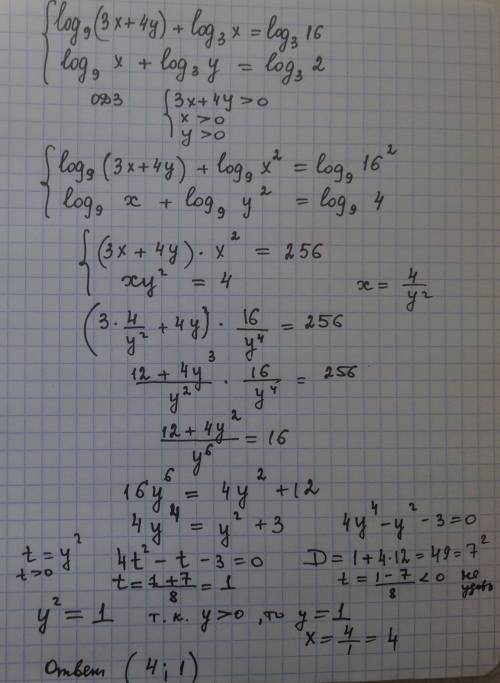 { log₉(3x+4y) + log₃ x = log₃ 16
log₉ x + log₃ y = log₃ 2
ОДЗ { 3x+4y>0
x>0
y>0
{ log₉ (3x+4y) + log₉ x² = log₉ 16²
log₉ x + log₉ y² = log₉ 4
{ (3x+4y) · x² = 256
xy² = 4 x = 4/y²
(3 · 4/y² + 4y) · 16/y⁴ = 256
(12 + 4y³)/y² · 16/y⁴ = 256
(12 + 4y²)/y⁶ = 16
16y⁶ = 4y² + 12
4y⁴ = y² + 3 4y⁴ - y² - 3 = 0
t = y² 4t² - t - 3 = 0 D = 1 + 4·12 = 49 = 7²
t>0 t = (1+7)/8 = 1 t = (1-7)/8 < 0 не удовл
y² = 1 т.к. y>0, то y = 1
x = 4/1 = 4
Ответ (4; 1)